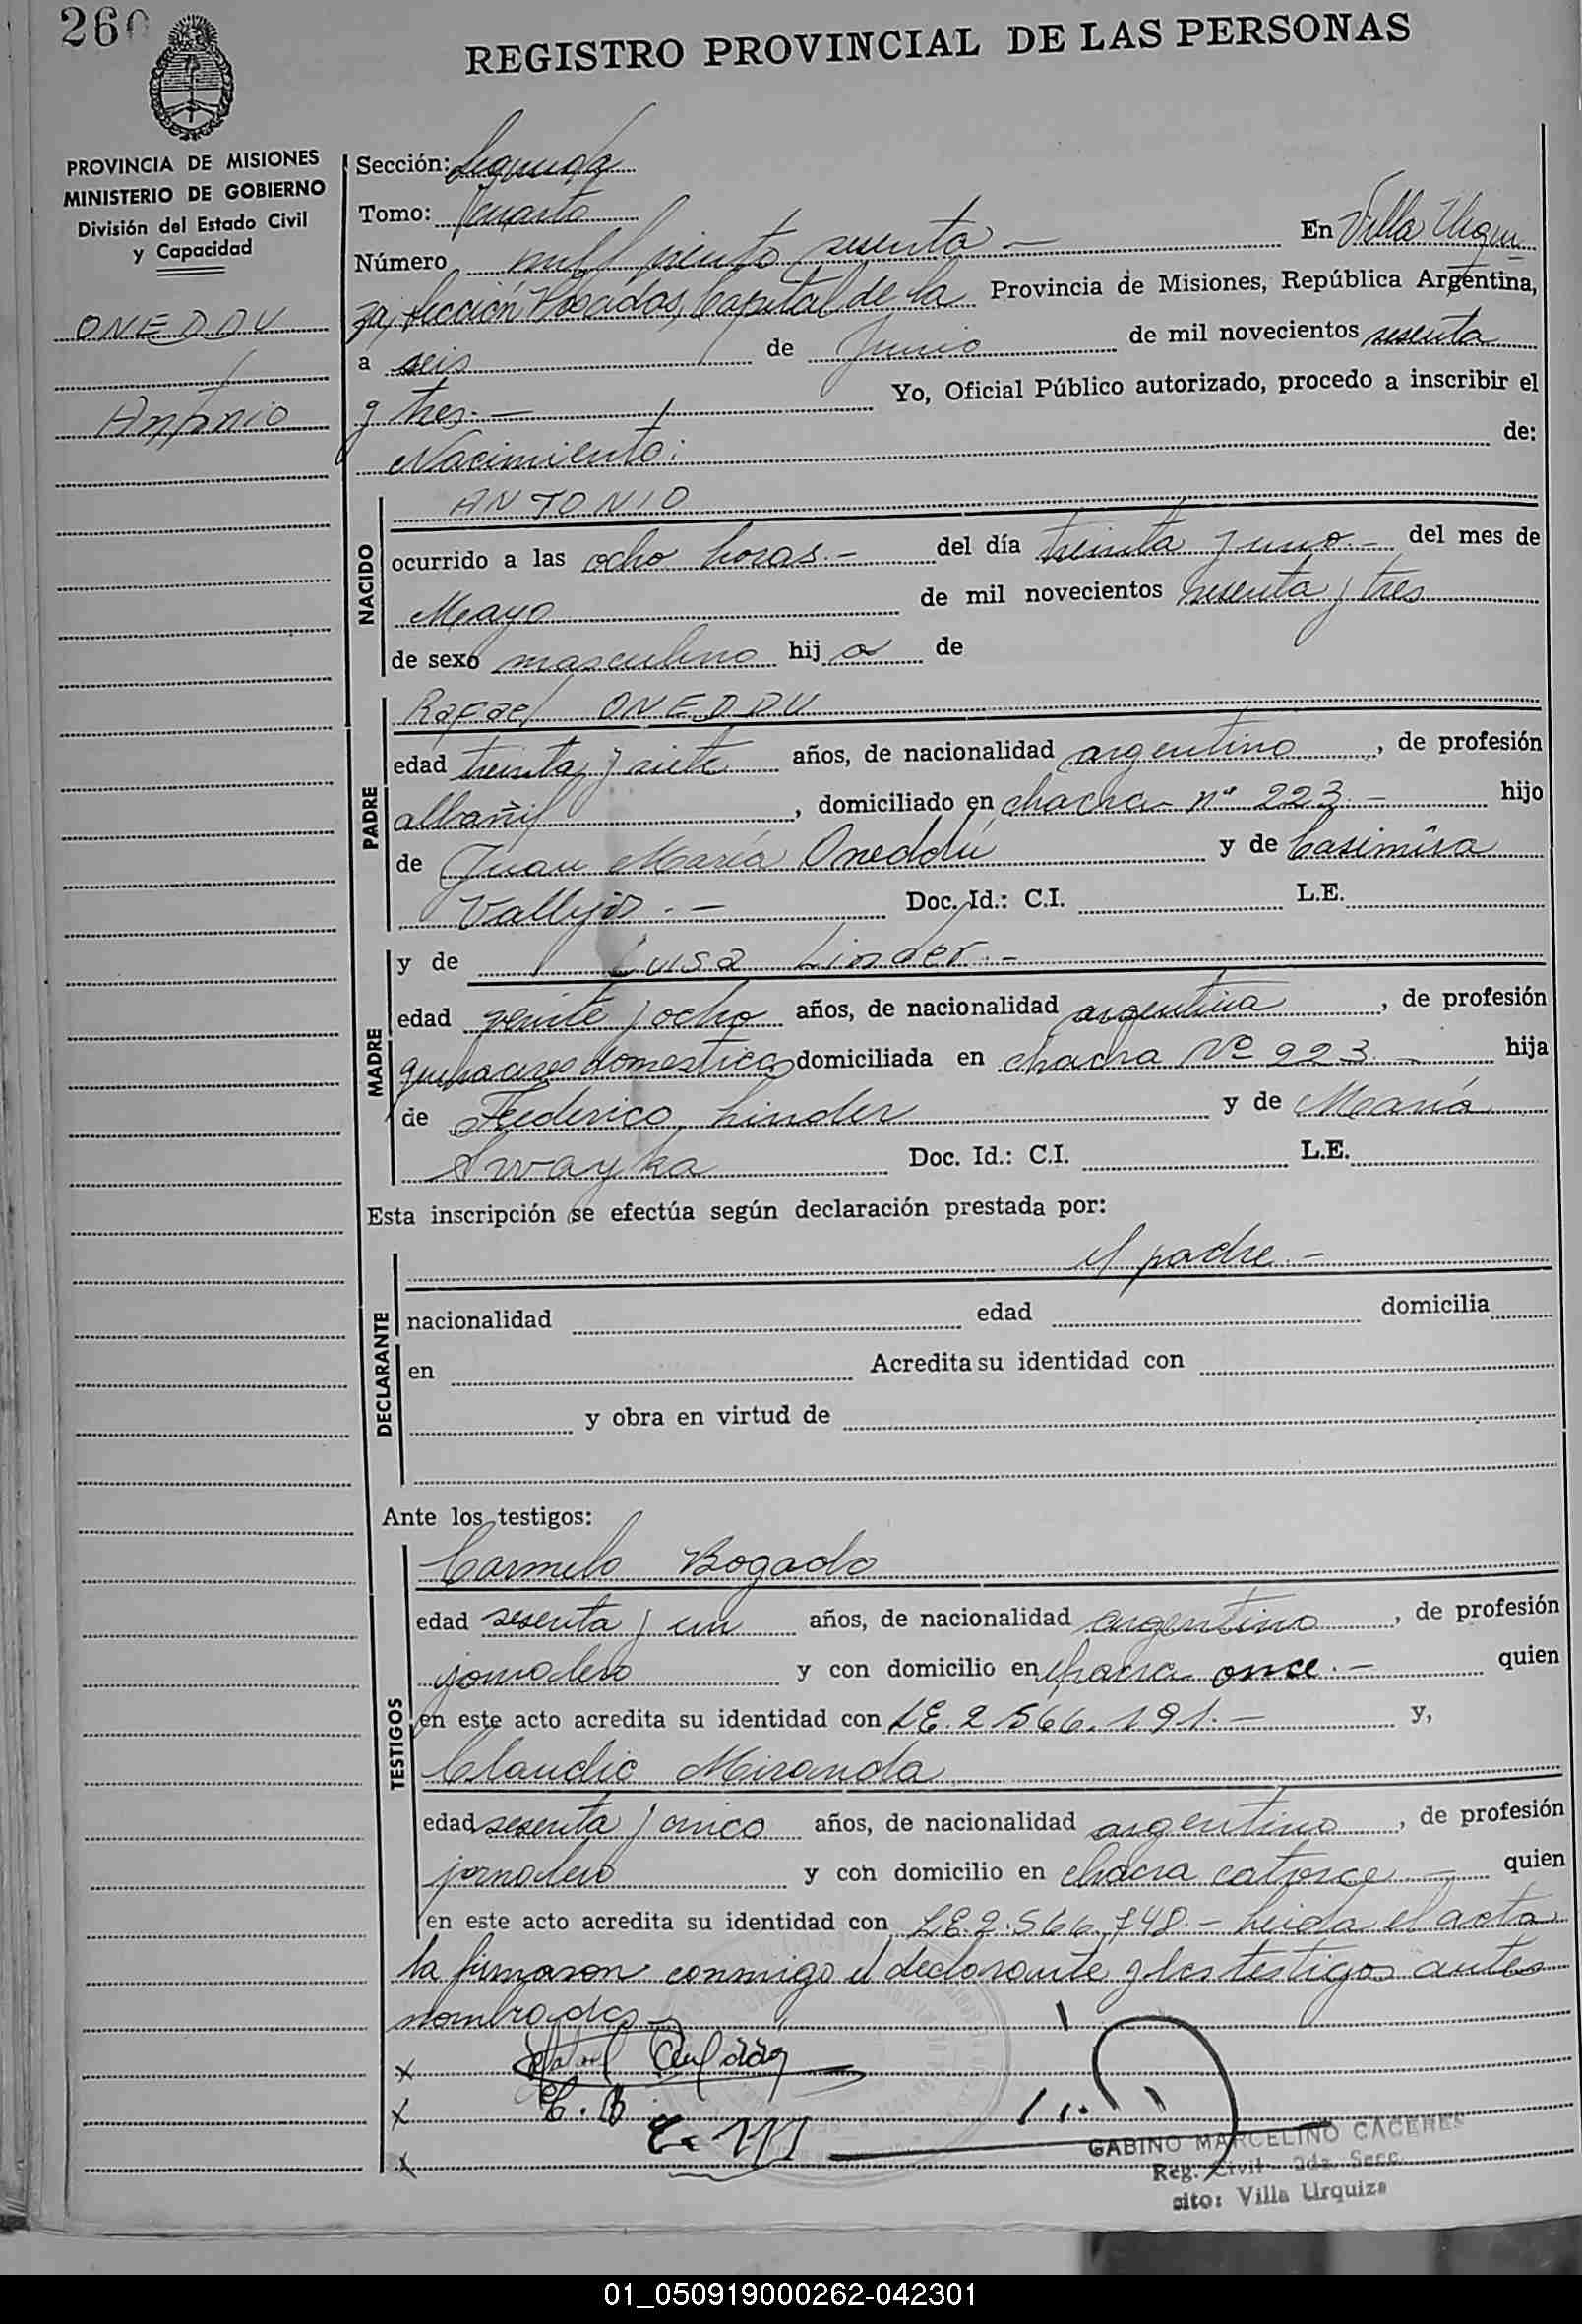 260
REGISTRO PROVINCIAL DE LAS PERSONAS
PROVINCIA DE MISIONES
MINISTERIO DE GOBIERNO
División del Estado Civil
y Capacidad
ONEDDU
Antonio
Sección: Segunda
Tomo: Cuarto
Número mil ciento sesenta — En Villa Urqui
za, Sección Posadas, Capital de la Provincia de Misiones, República Argentina,
a seis de Junio de mil novecientos sesenta
y tres.— Yo, Oficial Público autorizado, procedo a inscribir el
Nacimiento: de:
NACIDO
ANTONIO
ocurrido a las ocho horas.— del día treinta y uno.— del mes de
Mayo de mil novecientos sesenta y tres
de sexo masculino hij o de
PADRE
Rafael ONEDDU
edad treinta y siete años, de nacionalidad argentino, de profesión
albañil, domiciliado en chacra nº 223.— hijo
de Juan María Oneddú y de Casimira
Vallejos.— Doc. Id.: C.I. L.E.
MADRE
y de Luisa Linder.—
edad veinte y ocho años, de nacionalidad argentina, de profesión
quehaceres domesticos domiciliada en chacra Nº 223.— hija
de Federico Linder y de María
Swayka Doc. Id.: C.I. L.E.
Esta inscripción se efectúa según declaración prestada por:
DECLARANTE
el padre.—
nacionalidad edad domicilia
en Acredita su identidad con
y obra en virtud de
Ante los testigos:
TESTIGOS
Carmelo Bogado
edad sesenta y un años, de nacionalidad argentino, de profesión
jornalero y con domicilio en chacra once.— quien
en este acto acredita su identidad con L.E. 2.566.191.— y,
Claudio Miranda
edad sesenta y cinco años, de nacionalidad argentino, de profesión
jornalero y con domicilio en chacra catorce — quien
en este acto acredita su identidad con L.E. 2.566.748.— Leida el acta
la firmaron conmigo el declarante y los testigos antes
nombrados.—
X
X C. B
X C. M
GABINO MARCELINO CACERES
Reg. Civil - 2da. Secc.
sito: Villa Urquiza
01_050919000262-042301